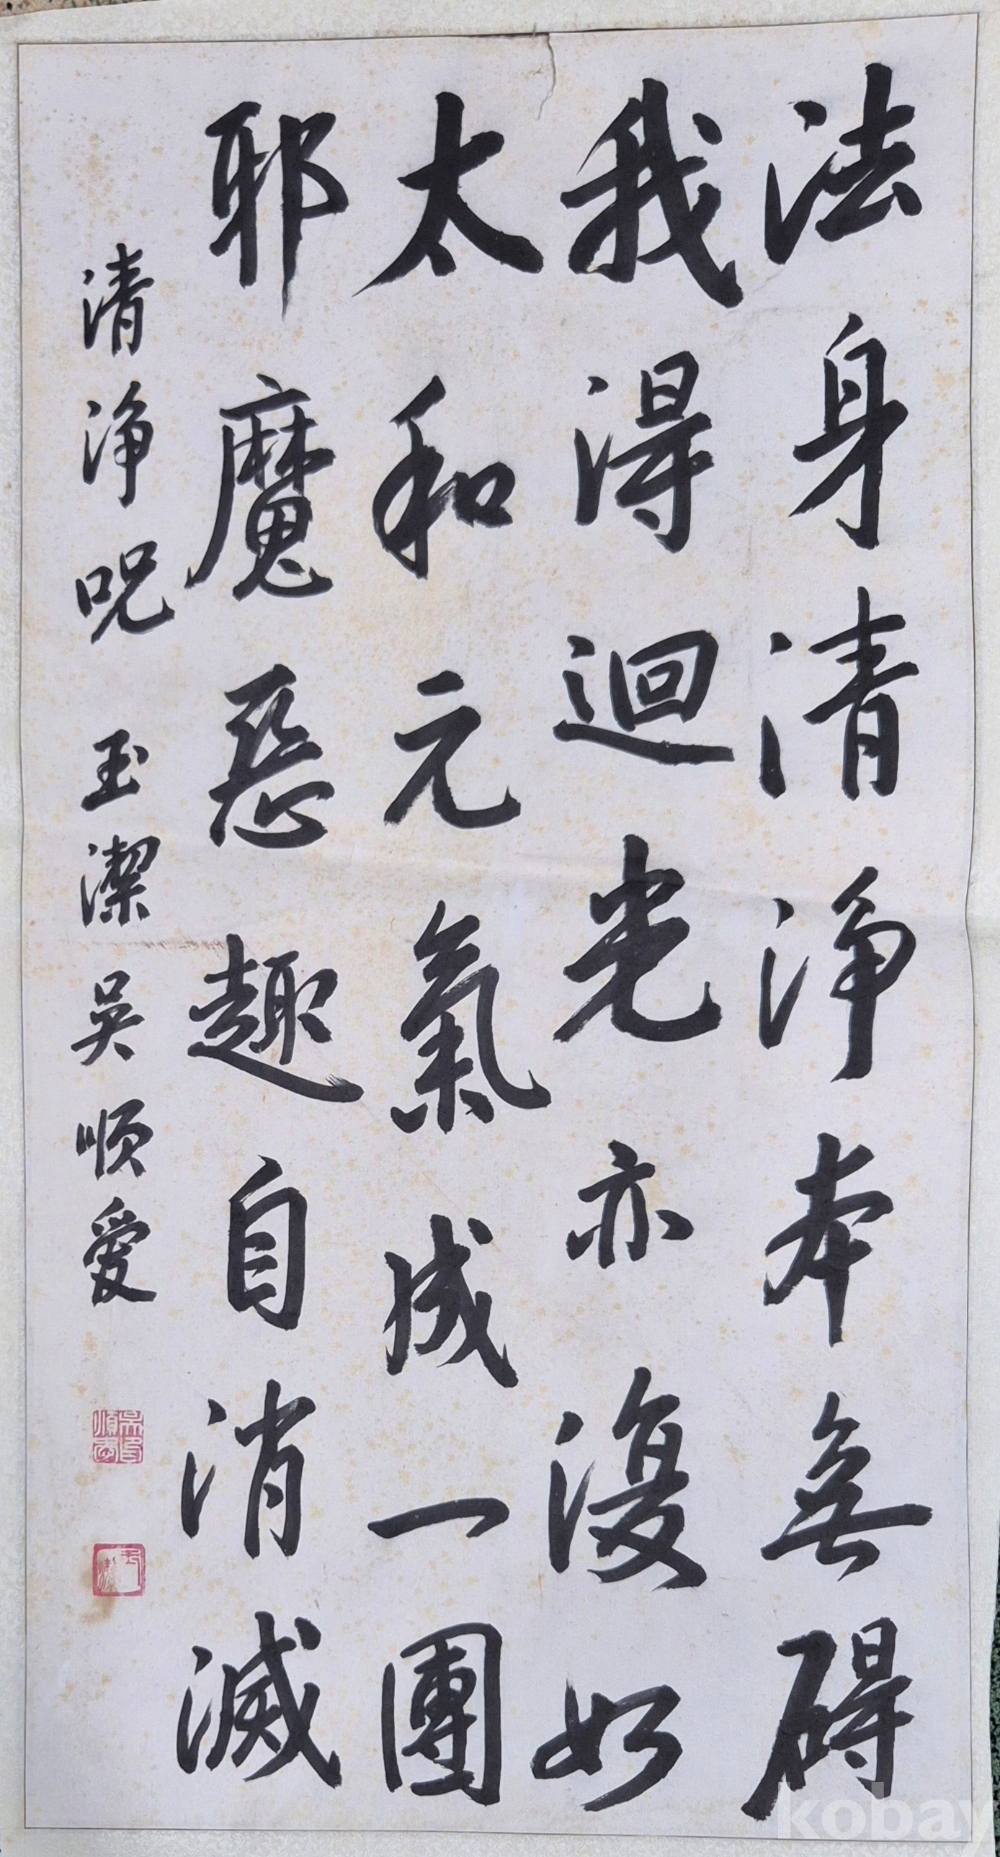 法身清淨本無碍
我得迴光亦復如
太和元氣成一團
耶魔惡趣自消滅
清淨呪 玉潔 吳順愛
kobay